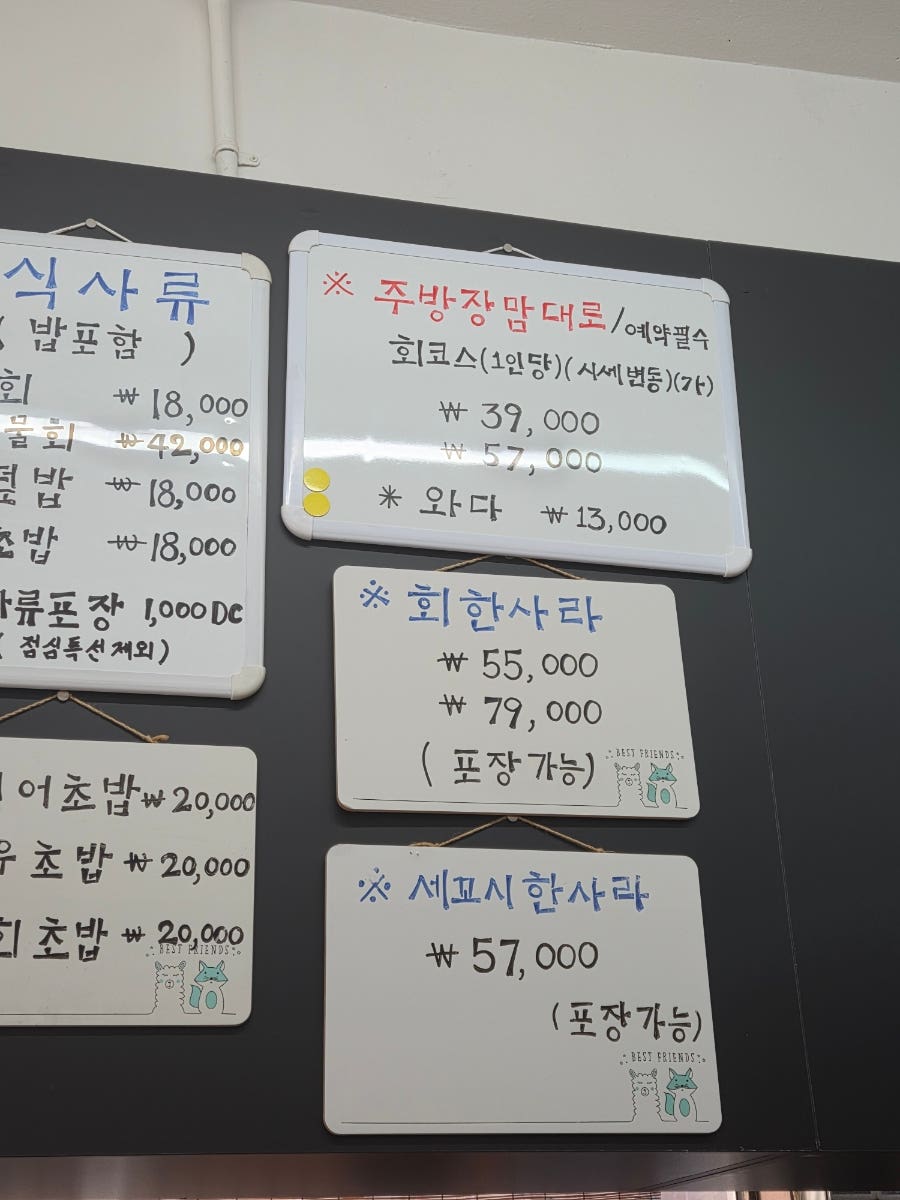 식사류
( 밥포함 )
회 ₩ 18,000
물회 ₩ 42,000
덮밥 ₩ 18,000
초밥 ₩ 18,000
사류포장 1,000 DC
( 점심특선제외 )
어초밥 ₩ 20,000
우초밥 ₩ 20,000
회초밥 ₩ 20,000
BEST FRIENDS
※ 주방장맘대로/예약필수
회코스(1인당)(시세변동)(가)
₩ 39,000
₩ 57,000
* 와다 ₩ 13,000
※ 회한사라
₩ 55,000
₩ 79,000
( 포장가능)
BEST FRIENDS
※ 세꼬시한사라
₩ 57,000
( 포장가능)
BEST FRIENDS